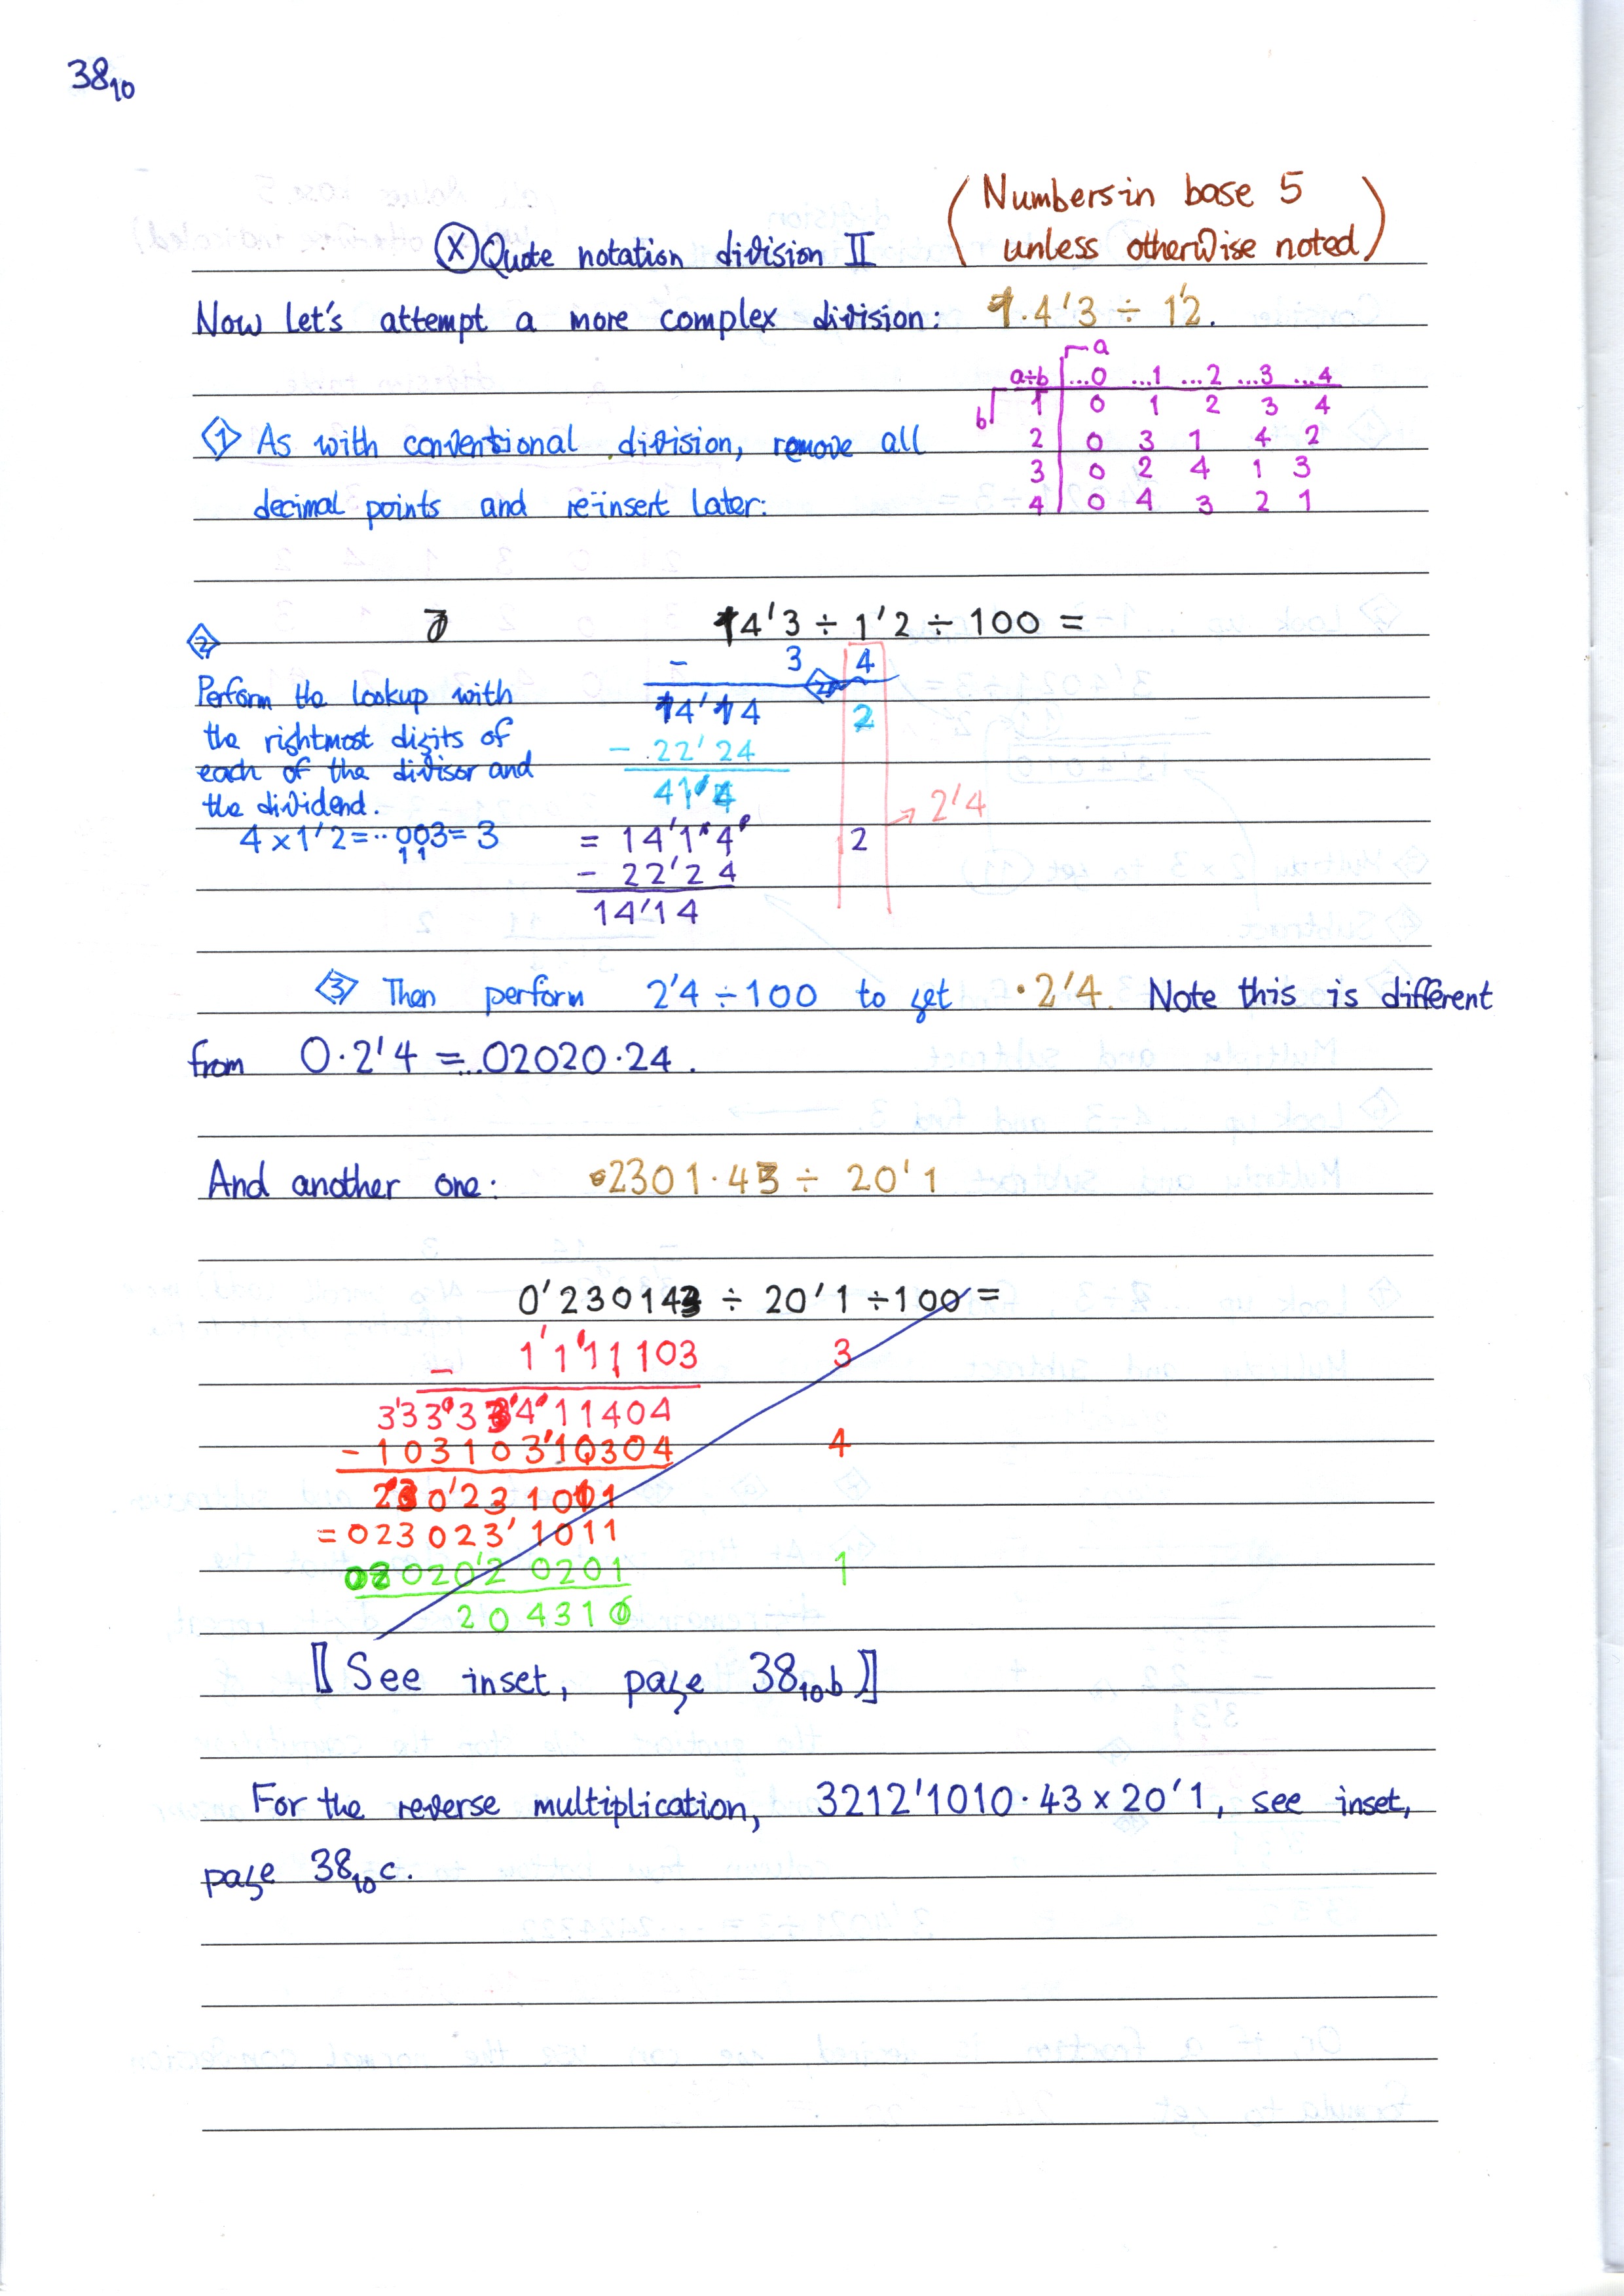 38₁₀
(Numbers in base 5
unless otherwise noted)
Ⓧ Quote notation division II
Now let's attempt a more complex division: 1.4'3 ÷ 1'2.
a
a÷b ...0 ...1 ...2 ...3 ...4
b
1 0 1 2 3 4
2 0 3 1 4 2
3 0 2 4 1 3
4 0 4 3 2 1
1 As with conventional division, remove all
decimal points and reïnsert later:
14'3 ÷ 1'2 ÷ 100 =
2
Perform the lookup with
the rightmost digits of
each of the divisor and
the dividend.
4 × 1'2 = ··003 = 3
11
- 3 4
14'14 2
- 22'24
= 14'1 4 2
- 22'24
14'14
→ 2'4
3 Then perform 2'4 ÷ 100 to get .2'4. Note this is different
from 0.2'4 = ...02020.24.
And another one: 2301.43 ÷ 20'1
0'230143 ÷ 20'1 ÷ 100 =
- 1'1 1 1 103 3
- 103103'10304 4
= 023023'1011
0202'0201 1
204310
⟦See inset, page 38₁₀b⟧
For the reverse multiplication, 3212'1010.43 × 20'1, see inset,
page 38₁₀c.